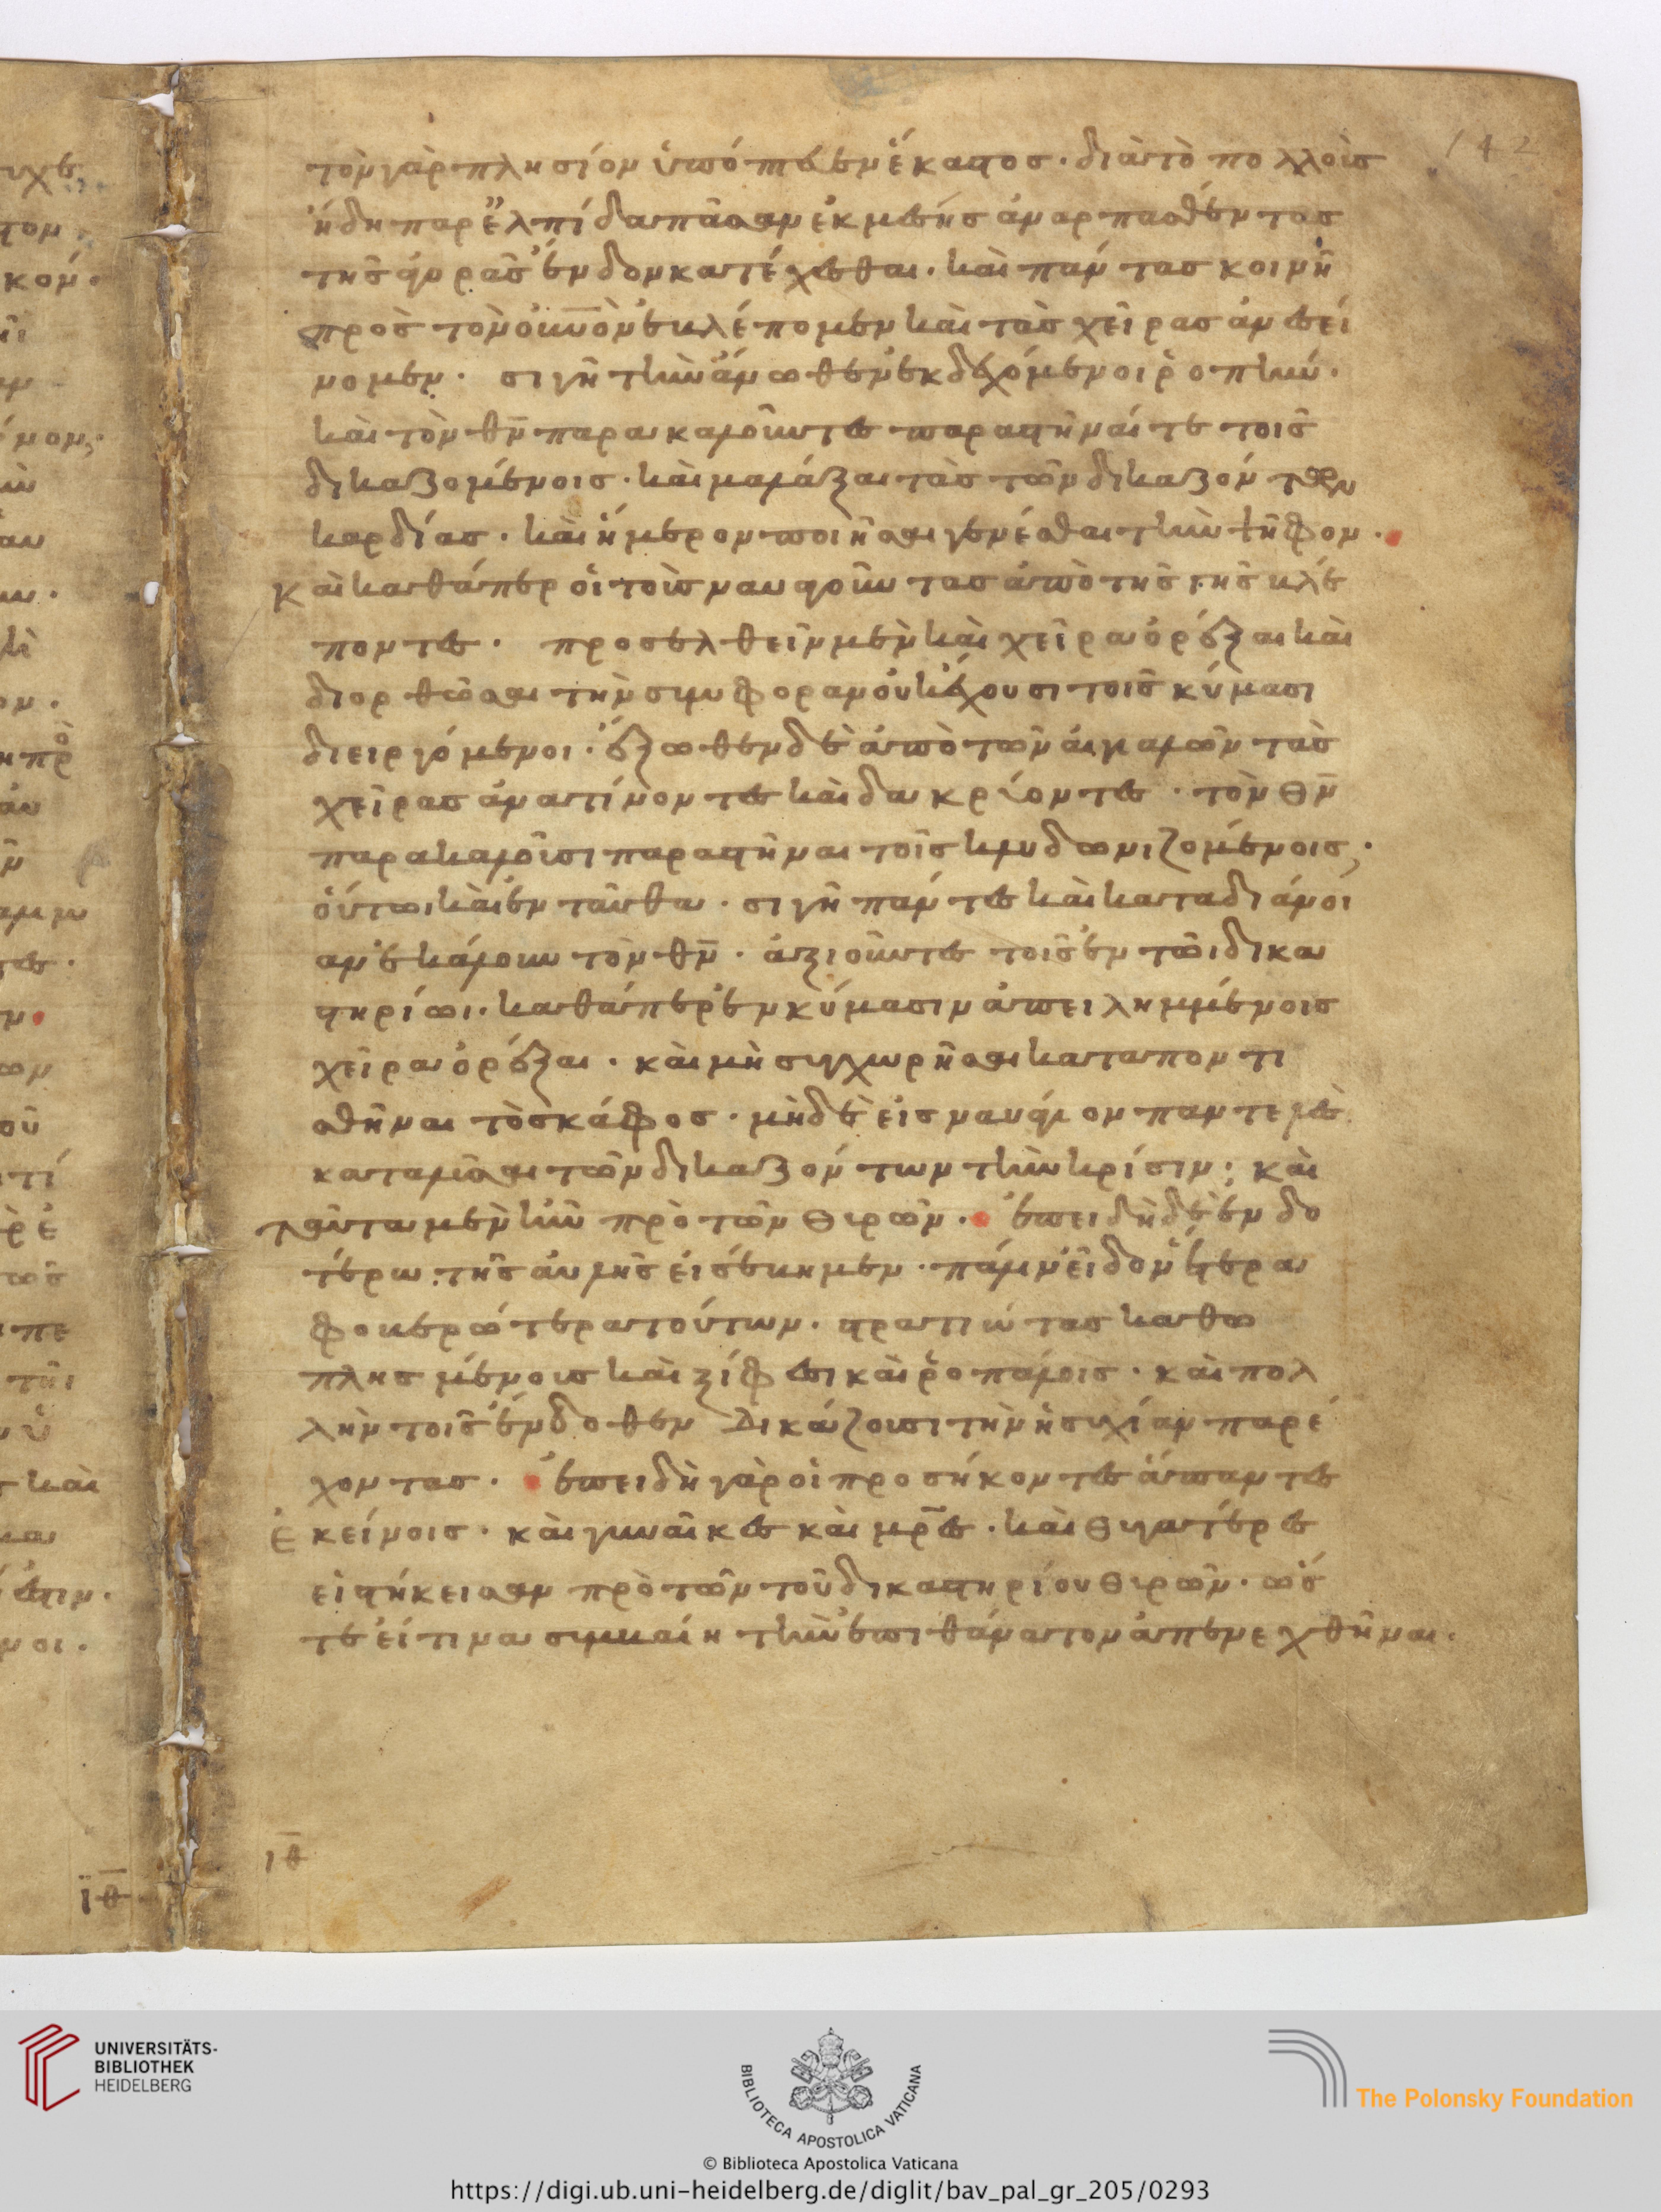 142
τὸν γὰρ πλησίον ὑπόπτευεν ἕκαστος· διὰ τὸ πολλοὺς
ἤδη παρ' ἐλπίδα πᾶσαν ἐκ μέσης ἀναρπασθέντας
τῆς ἀγορᾶς ἔνδον κατέχεσθαι· καὶ πάντας κοινῆ
πρὸς τὸν οὐνὸν ἐβλέπομεν καὶ τὰς χεῖρας ἀνετεί
νομεν· σιγῆ τὴν ἄνωθεν ἐκδεχόμενοι ῥοπήν·
καὶ τὸν θν παρακαλοῦντες παραστῆναί τε τοῖς
δικαζομένοις· καὶ μαλάξαι τὰς τῶν δικαζόντων
καρδίας· καὶ ἥμερον ποιῆσαι γενέσθαι τὴν ψῆφον·
Καὶ καθάπερ οἱ τοὺς ναυαγοῦντας ἀπὸ τῆς γῆς βλέ
ποντες· προσελθεῖν μὲν καὶ χεῖρα ὀρέξαι καὶ
διορθῶσαι τὴν συμφορὰν οὐκ ἔχουσι τοῖς κύμασι
διειργόμενοι· ἔξωθεν δὲ ἀπὸ τῶν αἰγιαλῶν τὰς
χεῖρας ἀνατείνοντες καὶ δακρύοντες· τὸν θν
παρακαλοῦσι παραστῆναι τοῖς κλυδωνιζομένοις·
οὕτω καὶ ἐνταῦθα· σιγῆ πάντες καὶ κατὰ διάνοι
αν ἐκάλουν τὸν θν· ἀξιοῦντες τοῖς ἐν τῶι δικα
στηρίωι· καθάπερ ἐν κύμασιν ἀπειλημμένοις
χεῖρα ὀρέξαι· καὶ μὴ συγχωρῆσαι καταποντι
σθῆναι τὸ σκάφος· μηδὲ εἰς ναυάγιον παντελὲς
καταλῦσαι τῶν δικαζόντων τὴν κρίσιν· καὶ
ταῦτα μὲν ἦν πρὸ τῶν θυρῶν· ἐπειδὴ δὲ ἐνδο
τέρω τῆς αὐλῆς εἰσέβημεν· πάλιν εἶδον ἕτερα
φοβερώτερα τούτων· στρατιώτας καθω
πλισμένους καὶ ξίφεσι καὶ ῥοπάλοις· καὶ πολ
λὴν τοῖς ἔνδοθεν δικάζουσι τὴν ἡσυχίαν παρέ
χοντας· ἐπειδὴ γὰρ οἱ προσήκοντες ἅπαντες
ἐκείνοις· καὶ γυναῖκες καὶ μρες· καὶ θυγατέρες
εἱστήκεισαν πρὸ τῶν τοῦ δικαστηρίου θυρῶν· ὥσ
τε εἴ τινα συμβαίη τὴν ἐπὶ θάνατον ἀπενεχθῆναι·
ιθ
ιθ
UNIVERSITÄTS-
BIBLIOTHEK
HEIDELBERG
BIBLIOTECA APOSTOLICA VATICANA
The Polonsky Foundation
© Biblioteca Apostolica Vaticana
https://digi.ub.uni-heidelberg.de/diglit/bav_pal_gr_205/0293